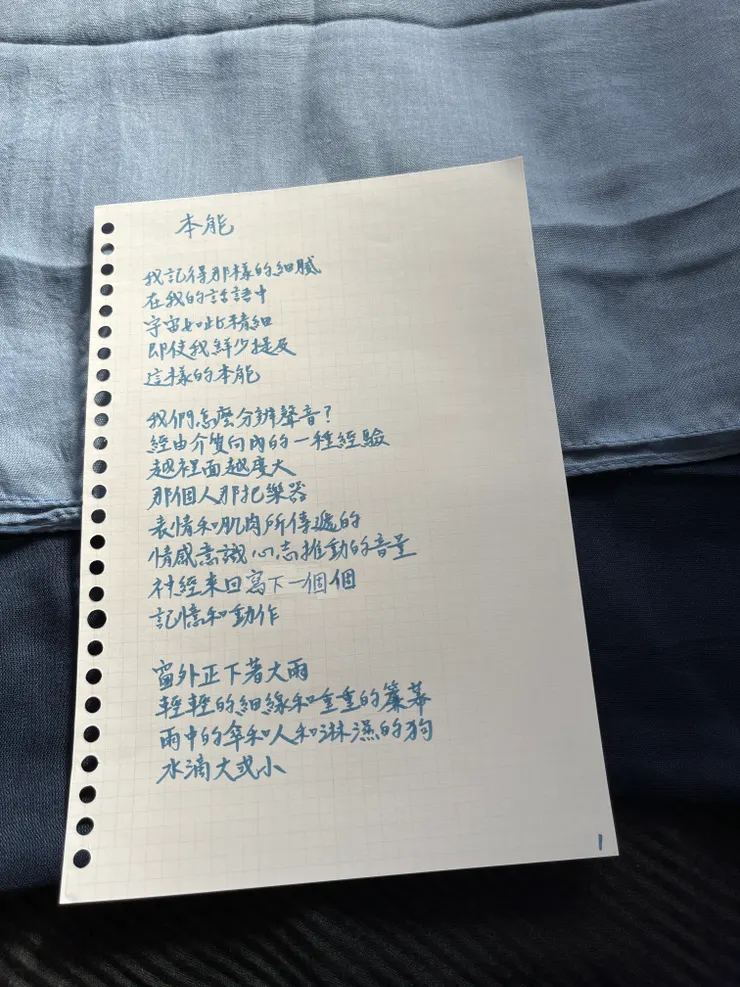 本能
我記得那樣的細膩
在我的話語中
宇宙如此精細
即使我鮮少提及
這樣的本能
我們怎麼分辨聲音?
經由介質向內的一種經驗
越裡面越廣大
那個人那把樂器
表情和肌肉所傳遞的
情感意識心志推動的音量
神經來回寫下一個個
記憶和動作
窗外正下著大雨
輕輕的細線和重重的簾幕
雨中的傘和人和淋濕的狗
水滴大或小
1